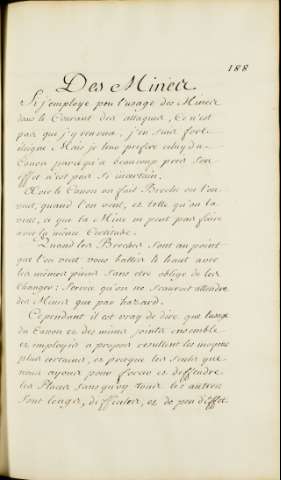 188
Des Mines
Si j'employe peu l'usage des Mines
dans le Courant des attaques, Ce n'est
pas que j'y renonce, j'en suis fort
éloigné Mais je leur prefere celuy du
Canon parce qu'a beaucoup prés son
effet n'est pas si incertain.
Avec le Canon on fait Breche ou l'on
veut, quand l'on veut, et telle qu'on la
veut, ce que la Mine ne peut pas faire
avec la même Certitude.
Quand les Breches sont au point
que l'on veut vous battés le haut avec
les mêmes pieces sans etre obligé de les
changer: Service qu'on ne scauroit attendre
des Mines que par hazard.
Cependant il est vray de dire que l'usage
du Canon et des mines joints ensemble
et employés a propos rendent les moyens
plus certains, et presque les seuls que
nous ayons pour forcer et deffendre
les Places sans quoy tous les autres
sont longs, difficiles, et de peu d'effet.